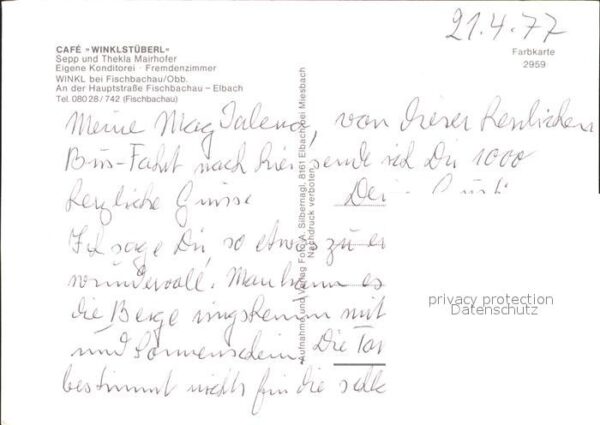 21.4.77
CAFÉ »WINKLSTÜBERL«
Sepp und Thekla Mairhofer
Eigene Konditorei · Fremdenzimmer
WINKL bei Fischbachau/Obb.
An der Hauptstraße Fischbachau – Elbach
Tel. 080 28 / 742 (Fischbachau)
Farbkarte
2959
Meine Magdalena, von dieser herrlichen
Bus-Fahrt nach hier sende ich Dir 1000
herzliche Grüsse
Ich sage Dir, so etwas zu er
wundervoll. Man kann es
die Berge ringsherum mit
und Sonnenschein. Die Tor
bestimmt nichts für die
Aufnahme und Verlag Foto A. Silbernagl, 8161 Elbach bei Miesbach
Nachdruck verboten
privacy protection
Datenschutz